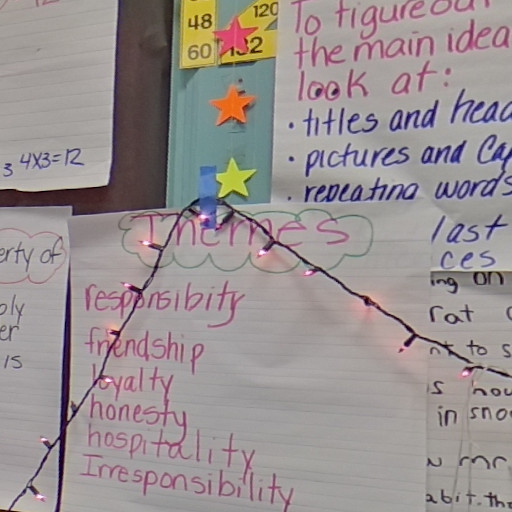 48
120
60
132
To figure out
the main idea
look at:
• titles and
• pictures and
• repeating words
last
ces
3 4x3=12
erty of
oly
er
is
Themes
responsibity
friendship
loyalty
honesty
hospitality
Irresponsibility
ing on
rat
to s
s
in sno
mr
abit. the